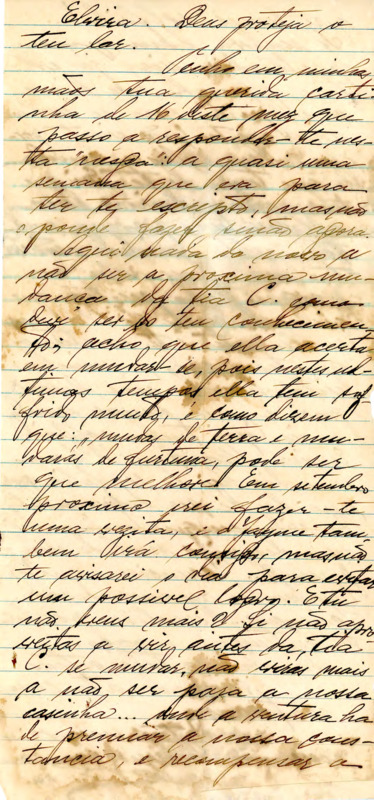 Elvira. Deus proteja o
teu lar.
Tenho em minhas
mãos tua querida carti-
nha de 16 deste mez que
passo a responder-te nes-
ta vespa: a quasi uma
semana que era para
ter te escripto, mas não
o pounde fazer sinão agora.
Aqui nada de novo a
não ser a proxima mu-
dança da tia C. como
ser do teu conhecimen-
to; acho, que ella acerta
em mudar-se, pois nestes ul-
timos tempos ella tem sof
frido muito, e como dizem
que: mudas de terra e mu-
darás de fortuna, pode ser
que melhore. Em setembro
proximo irei fazer-te
uma vezita, e o Jayme tam-
bem irá comigo, mas não
te avisarei o dia para evitar
um possivel logro. E tu
não vens mais? Si não apro
veitas a vir, antes da tia
C. se mudar, não viras mais
a não ser para a nossa
casinha... a ventura ha
de premiar a nossa cons-
tancia, e recompensar a